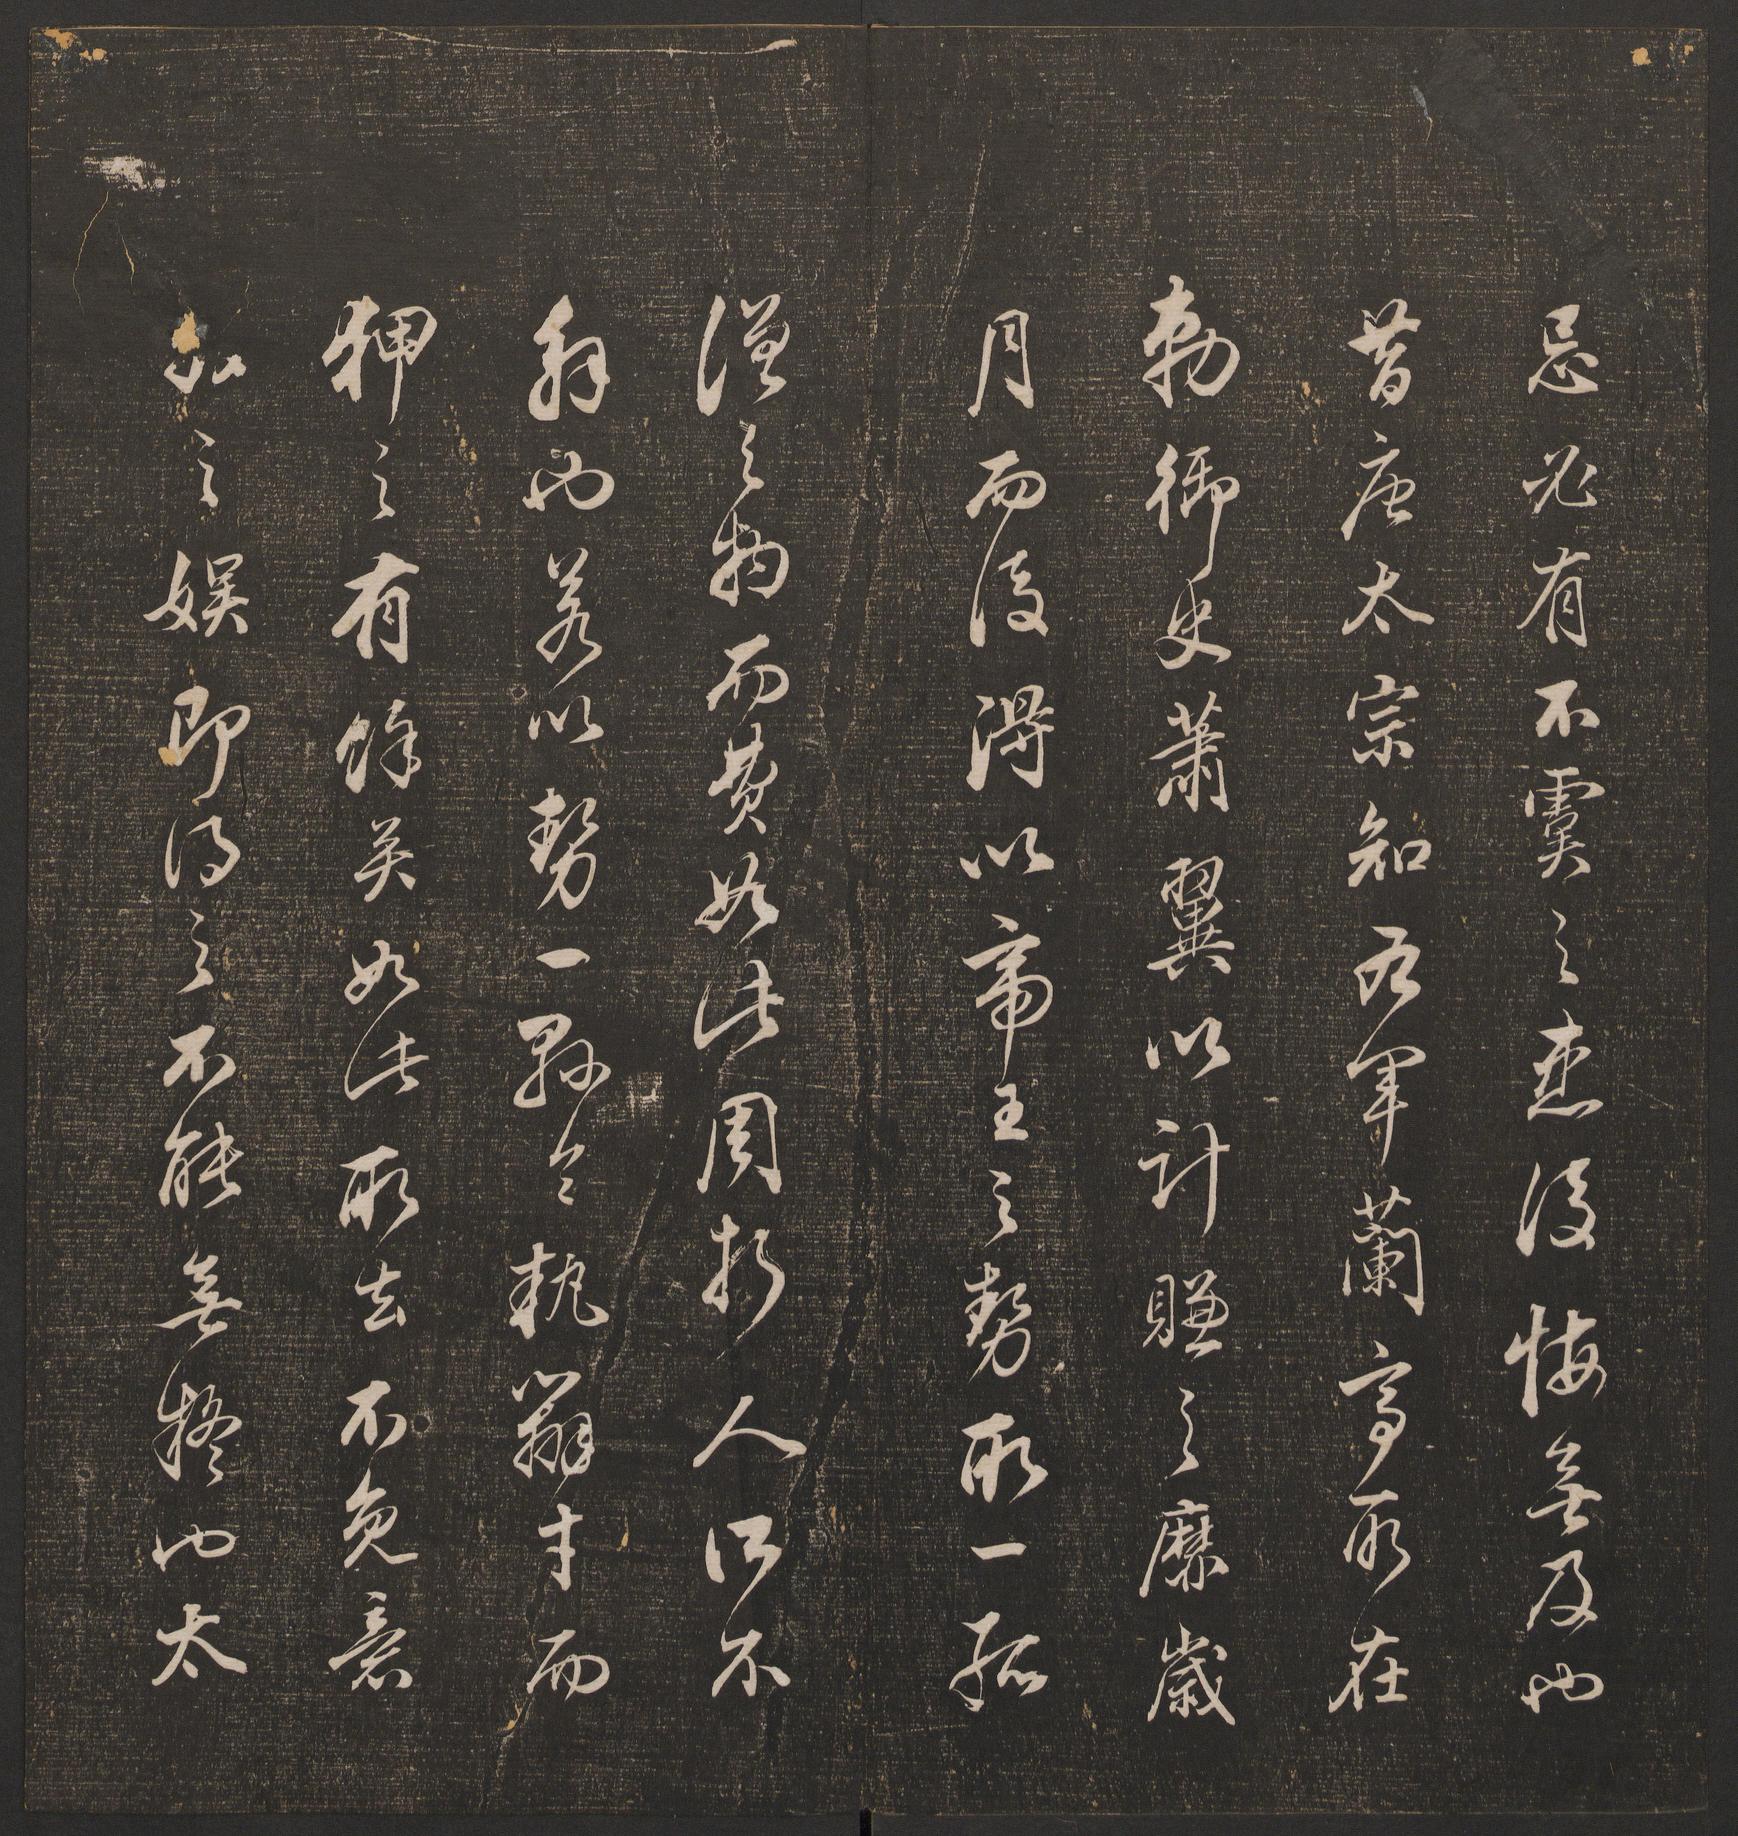 忌必有不虞之患後悔無及也
昔唐太宗知右軍蘭亭所在
勅御史蕭翼以計賺之靡歲
月而後得以帝王之勢取一孤
僧之物而費如此周折人所不
解也若以勢一縣令執辯才而
狎之有餘矣如此取去不免意
之娛即得之不能無也太